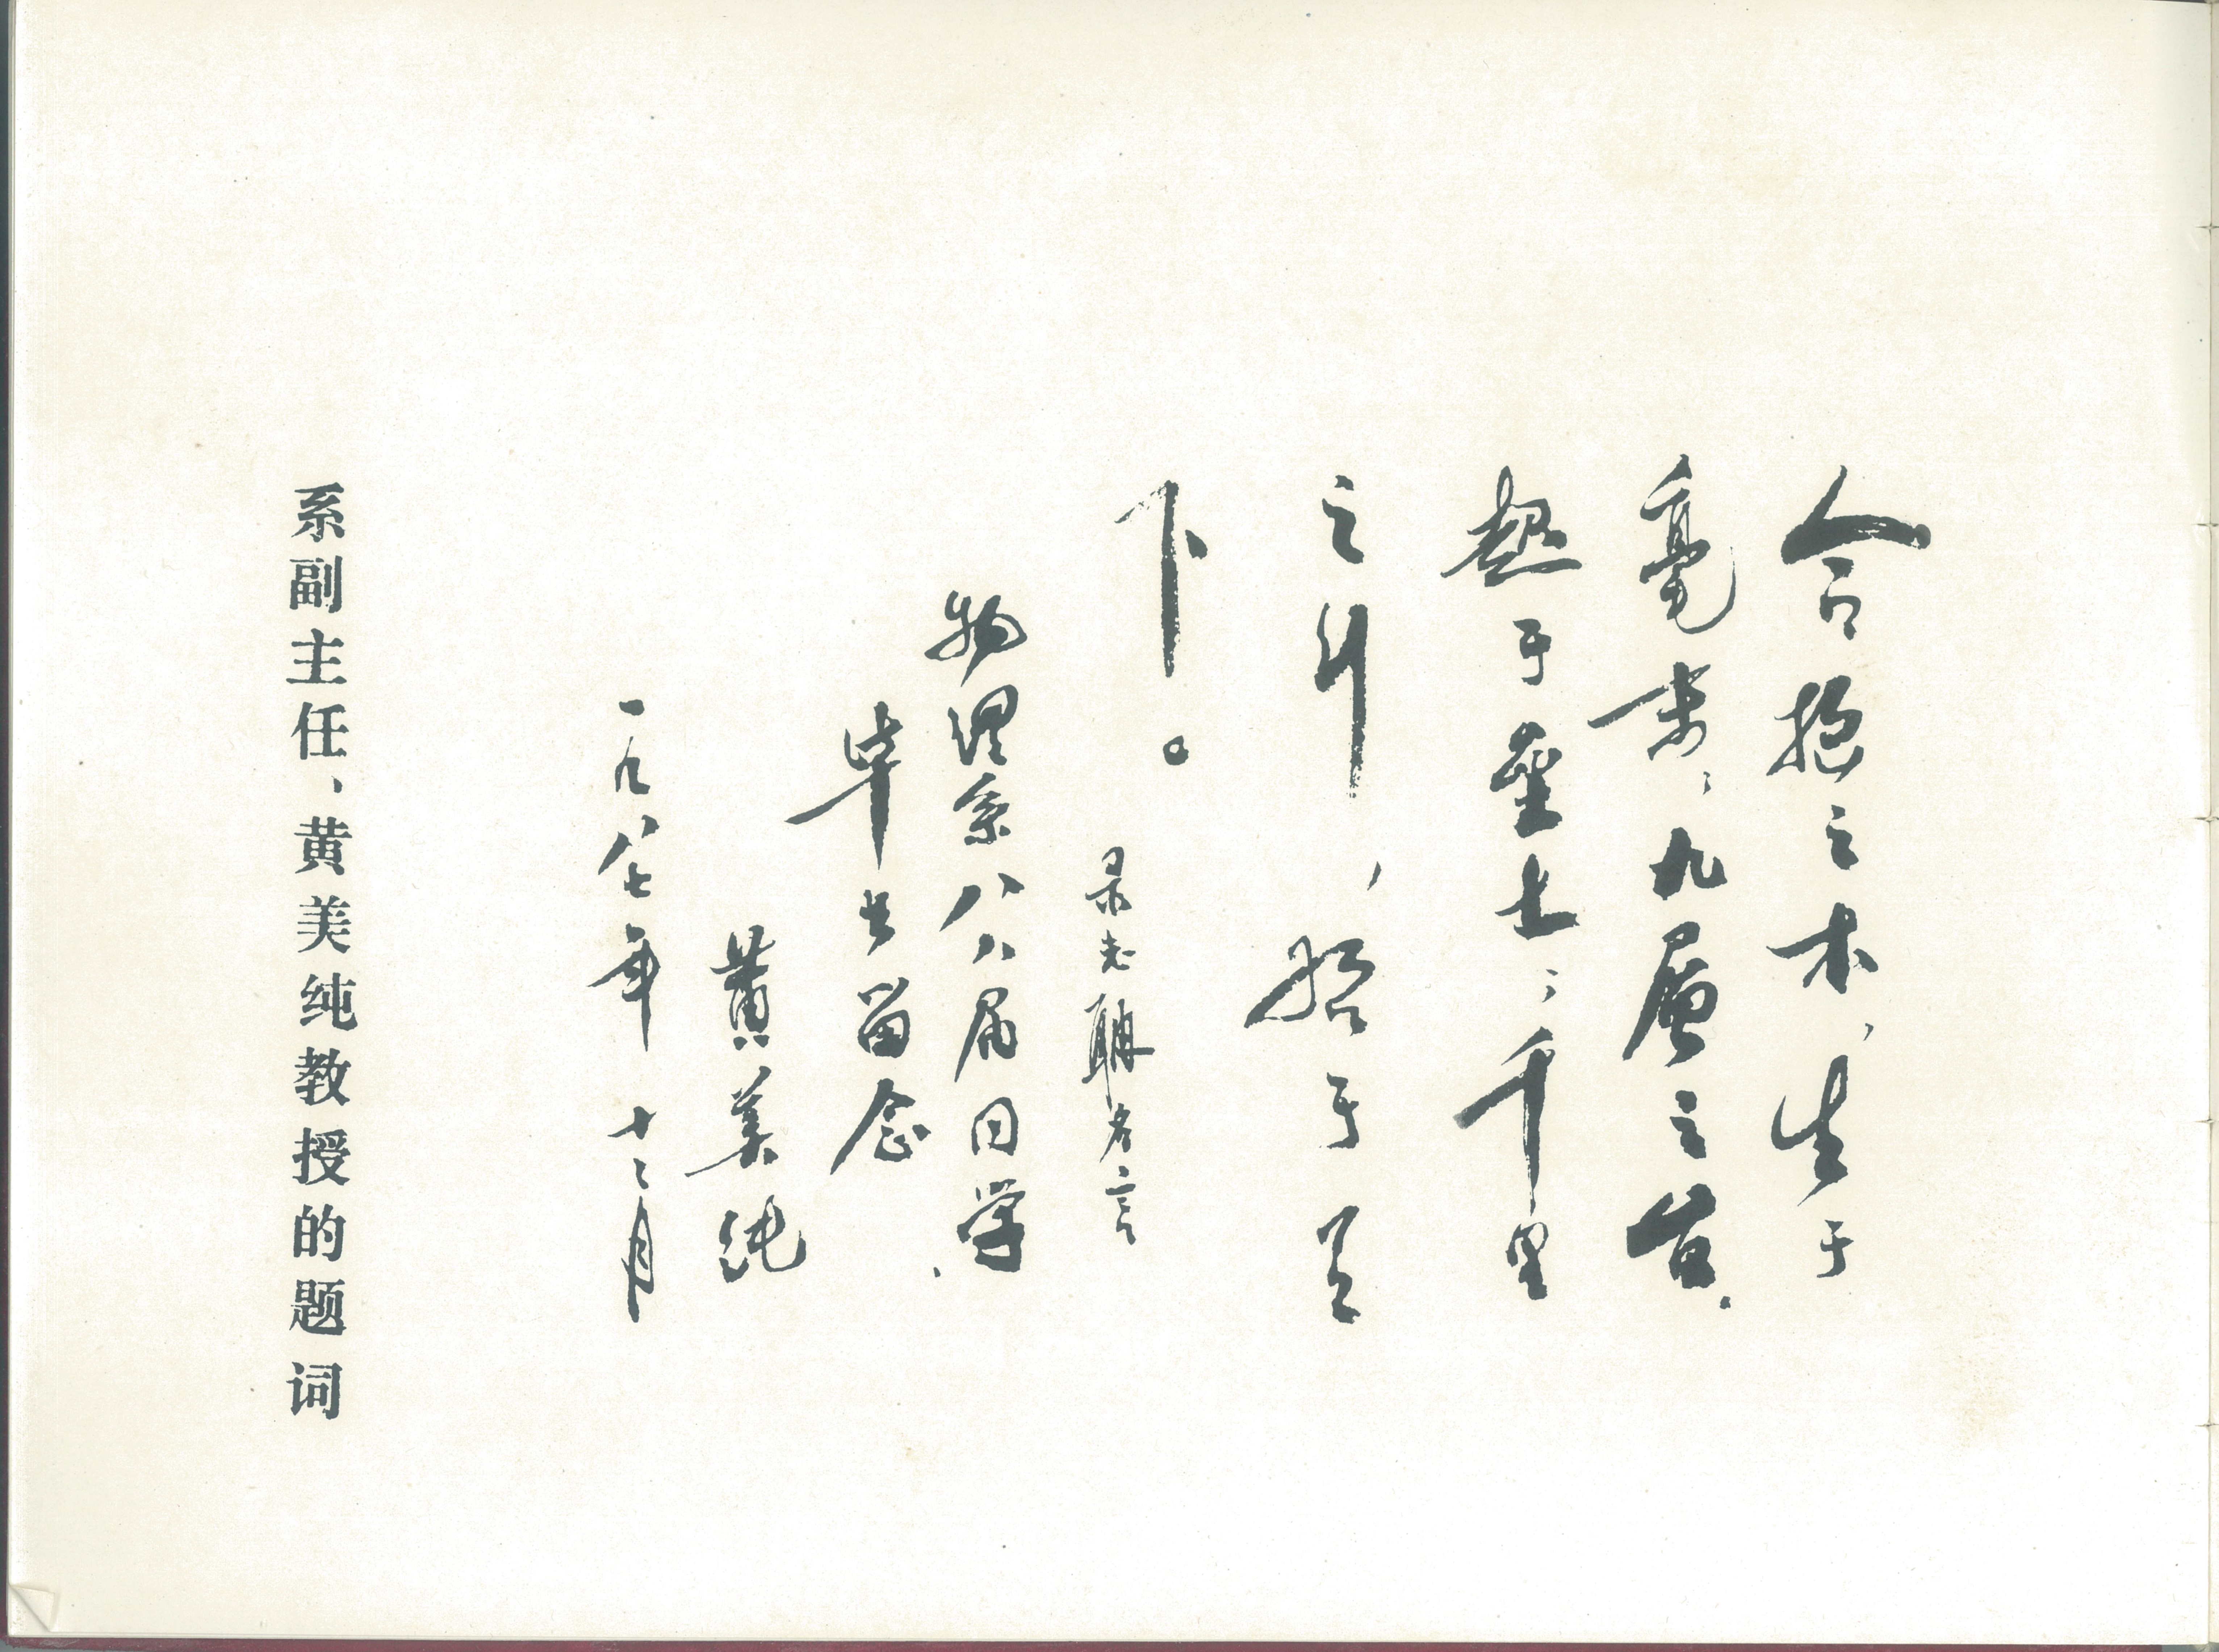 合抱之木，生于
毫末；九层之台，
起于垒土；千里
之行，始于足
下。
录老聃名言
物理系八八届同学
毕业留念
黄美纯
一九八七年十二月
系副主任、黄美纯教授的题词